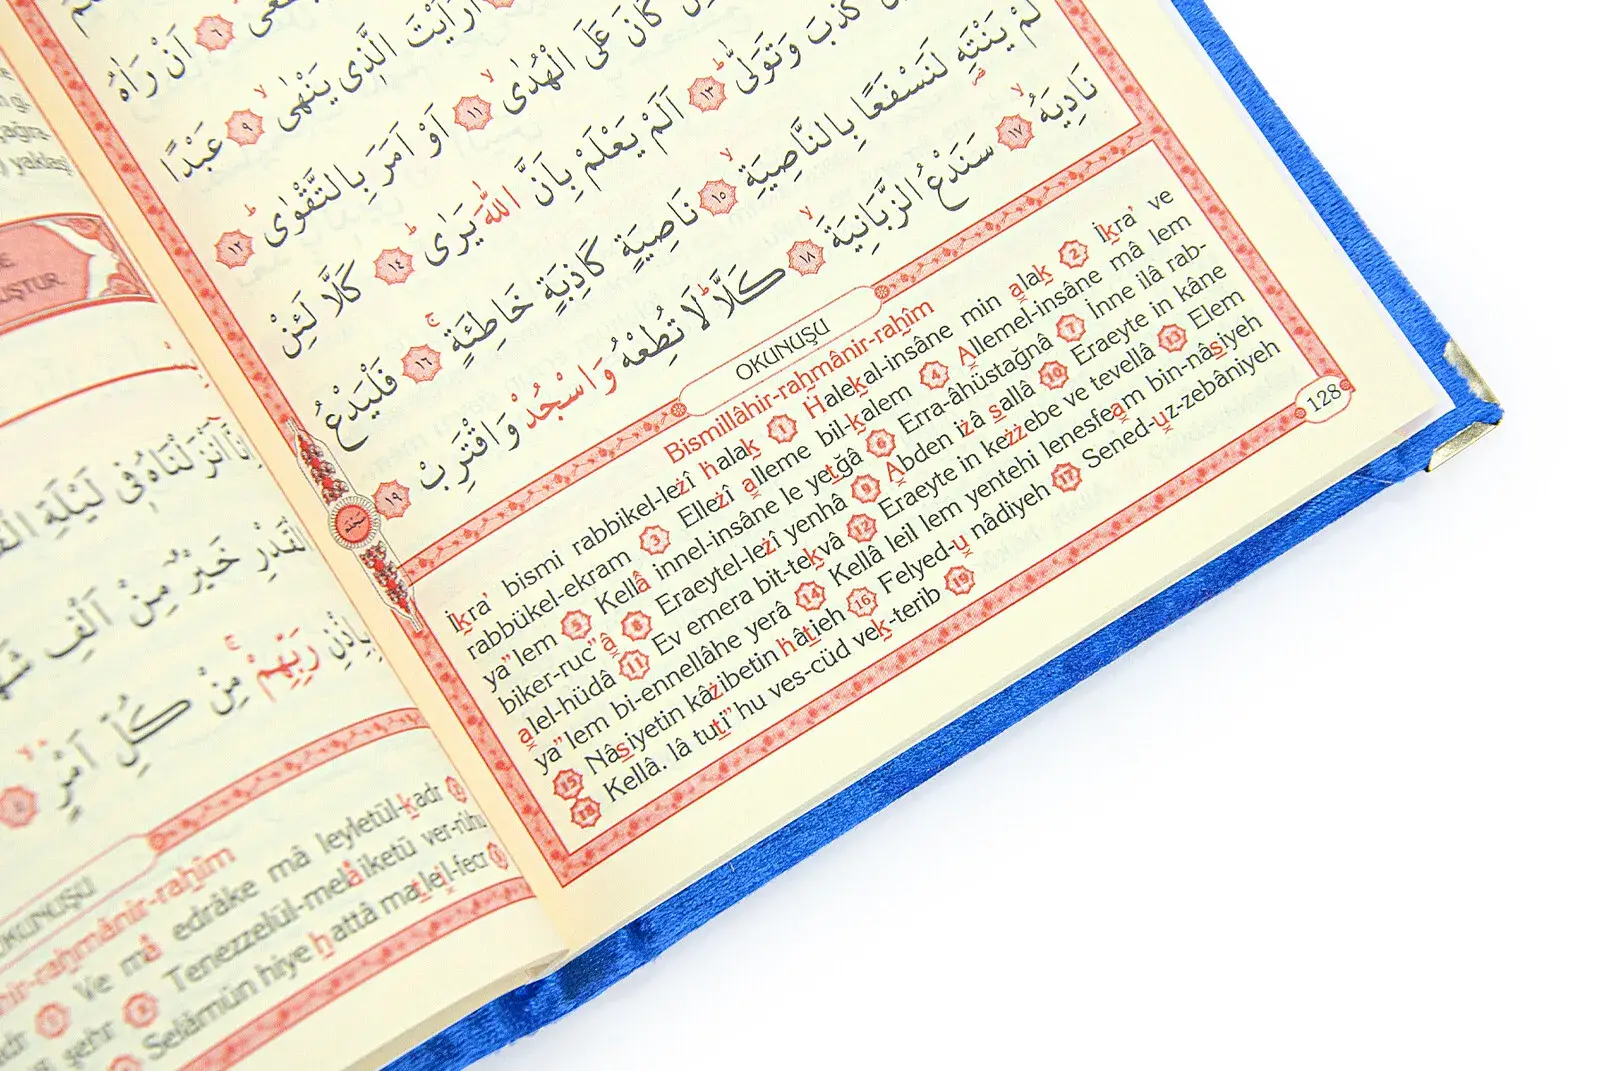 اَنْ رَاٰهُ
اَرَاَيْتَ الَّذٖى يَنْهٰى ٩ عَبْدًا
كَانَ عَلَى الْهُدٰى ١١ اَوْ اَمَرَ بِالتَّقْوٰى ١٢
كَذَّبَ وَتَوَلّٰى ١٣ اَلَمْ يَعْلَمْ بِاَنَّ اللّٰهَ يَرٰى ١٤ كَلَّا لَئِنْ
لَمْ يَنْتَهِ لَنَسْفَعًا بِالنَّاصِيَةِ ١٥ نَاصِيَةٍ كَاذِبَةٍ خَاطِئَةٍ ١٦ فَلْيَدْعُ
نَادِيَهُ ١٧ سَنَدْعُ الزَّبَانِيَةَ ١٨ كَلَّا لَا تُطِعْهُ وَاسْجُدْ وَاقْتَرِبْ ١٩
OKUNUŞU
Bismillâhir-rahmânir-rahîm
İkra’ bismi rabbikel-lezî halak 1 Halekal-insâne min alak 2 İkra’ ve
rabbükel-ekram 3 Ellezî alleme bil-kalem 4 Allemel-insâne mâ lem
ya”lem 5 Kellâ innel-insâne le yetğâ 6 Erra-âhüstağnâ 7 İnne ilâ rab-
biker-ruc”â 8 Eraeytel-lezî yenhâ 9 Abden izâ sallâ 10 Eraeyte in kâne
alel-hüdâ 11 Ev emera bit-tekvâ 12 Eraeyte in kezzebe ve tevellâ 13 Elem
ya”lem bi-ennellâhe yerâ 14 Kellâ leil lem yentehi lenesfeam bin-nâsiyeh
15 Nâsiyetin kâzibetin hâtieh 16 Felyed-u nâdiyeh 17 Sened-uz-zebâniyeh
18 Kellâ. lâ tuti”hu ves-cüd vek-terib 19
128
yaklaş
UŞTUR
اِنَّا اَنْزَلْنَاهُ فٖى لَيْلَةِ
الْقَدْرِ خَيْرٌ مِنْ اَلْفِ
رَبِّهِمْ مِنْ كُلِّ اَمْرٍ
OKUNUŞU
hir-rahmânir-rahîm
adr 1 Ve mâ edrâke mâ leyletül-kadr 2
şehr 3 Tenezzelül-melâiketü ver-rûhu
Selâmün hiye hattâ matleil-fecr 5